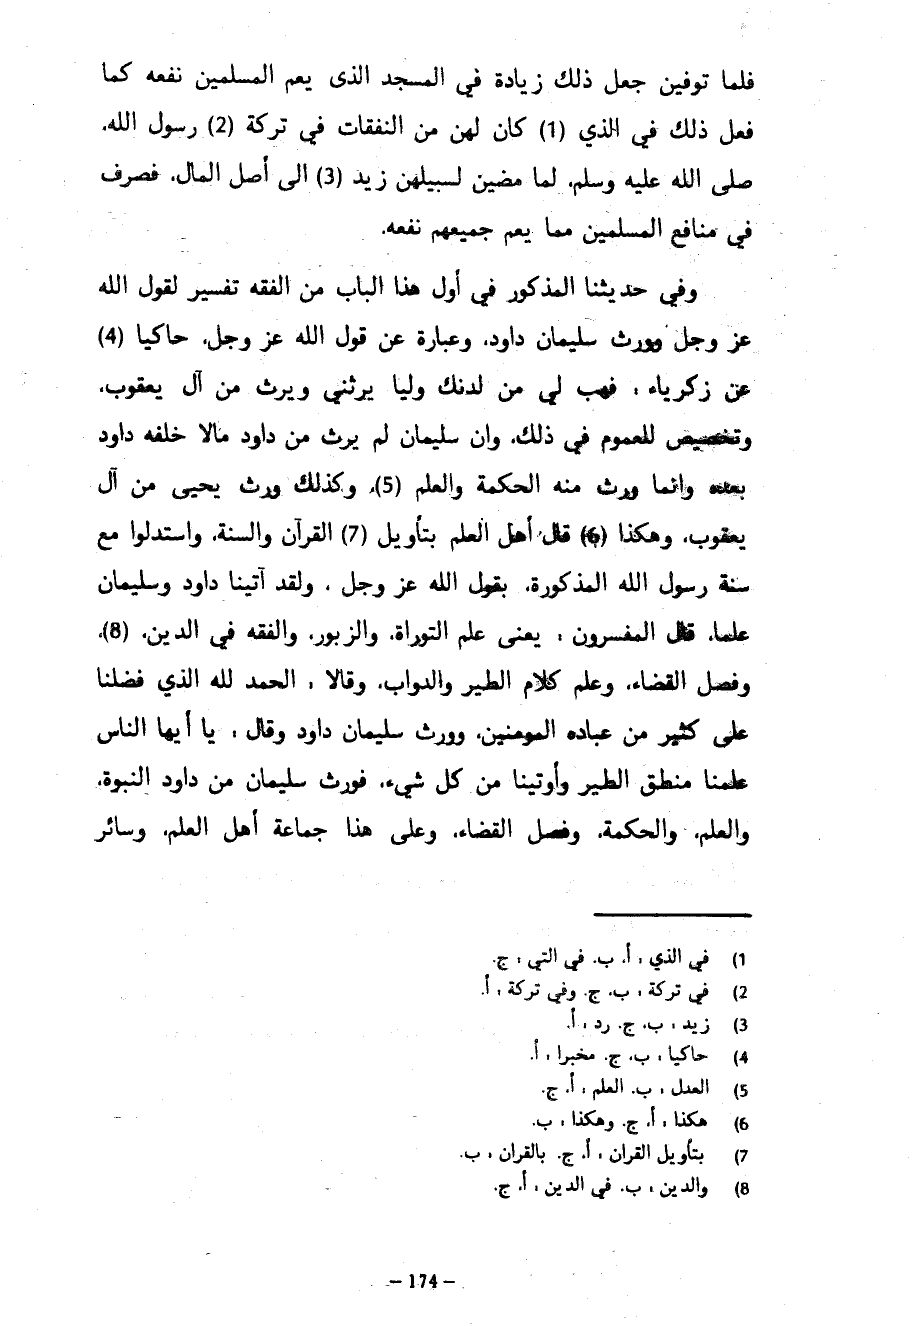 فلما توفين جعل ذلك زيادة في المسجد الذى يعم المسلمين نفعه كما
فعل ذلك في الذي (1) كان لهن من النفقات في تركة (2) رسول الله،
صلى الله عليه وسلم، لما مضين لسبيلهن زيد (3) الى أصل المال، فصرف
في منافع المسلمين مما يعم جميعهم نفعه.
وفي حديثنا المذكور في أول هذا الباب من الفقه تفسير لقول الله
عز وجل وورث سليمان داود، وعبارة عن قول الله عز وجل، حاكيا (4)
عن زكرياء : فهب لي من لدنك وليا يرثني ويرث من آل يعقوب،
وتخصيص للعموم في ذلك، وان سليمان لم يرث من داود مالا خلفه داود
بعده وانما ورث منه الحكمة والعلم (5)، وكذلك ورث يحيى من آل
يعقوب، وهكذا (6) قال أهل العلم بتأويل (7) القرآن والسنة، واستدلوا مع
سنة رسول الله المذكورة، بقول الله عز وجل : ولقد آتينا داود وسليمان
علما، قال المفسرون : يعنى علم التوراة، والزبور، والفقه في الدين، (8)،
وفصل القضاء، وعلم كلام الطير والدواب، وقالا : الحمد لله الذي فضلنا
على كثير من عباده المومنين، وورث سليمان داود وقال : يا أيها الناس
علمنا منطق الطير وأوتينا من كل شيء، فورث سليمان من داود النبوة،
والعلم، والحكمة، وفصل القضاء، وعلى هذا جماعة أهل العلم، وسائر
1) في الذي : أ. ب. في التي : ج.
2) في تركة : ب. ج. وفي تركة : أ.
3) زيد : ب. ج. رد : أ.
4) حاكيا : ب. ج. مخبرا : أ.
5) العدل : ب. العلم : أ. ج.
6) هكذا : أ. ج. وهكذا : ب.
7) بتأويل القران : أ. ج. بالقران : ب.
8) والدين : ب. في الدين : أ. ج.
— 174 —